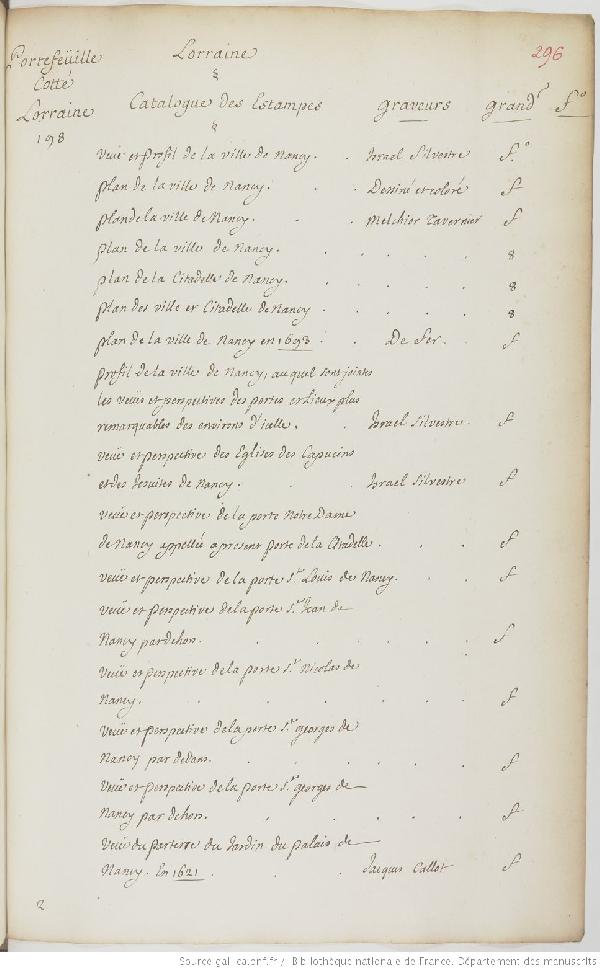 Portefeüille
Cotté
Lorraine
198
Lorraine
296
Catalogue des Estampes graveurs grandr fo
Veüe et profil de la ville de Nancy. . Israel Silvestre f.o
plan de la ville de Nancy. . . Dessiné et coloré f
plan de la ville de Nancy. . . Melchior Tavernier f
plan de la ville de Nancy. . . . . . 8
plan de la Citadelle de Nancy. . . . . . 8
plan des ville et Citadelle de Nancy . . . . . 8
plan de la ville de Nancy en 1693 . . De fer. . f
profil de la ville de Nancy, auquel sont jointes
les veües et perspectives des portes et lieux plus
remarquables des environs d'icelle. . Israel Silvestre. f
veüe et perspective des Eglises des Capucins
et des Jesuites de Nancy. . . Israel Silvestre f
veüe et perspective de la porte Notre Dame
de Nancy appellée apresent porte de la Citadelle. . . f
veüe et perspective de la porte St. Louis de Nancy. . . f
veüe et perspective de la porte St. Jean de
Nancy par dehors. . . . . . f
Veüe et perspective de la porte St. Nicolas de
Nancy. . . . . . . f
Veüe et perspective de la porte St. georges de
Nancy par dedans. . . . . . f
Veüe et perspective de la porte St. georges de
Nancy par dehors. . . . . . f
Veüe du parterre du Jardin du palais de
Nancy. En 1621 . . . Jacques Callot f
2
Source gallica.bnf.fr / Bibliothèque nationale de France. Département des manuscrits